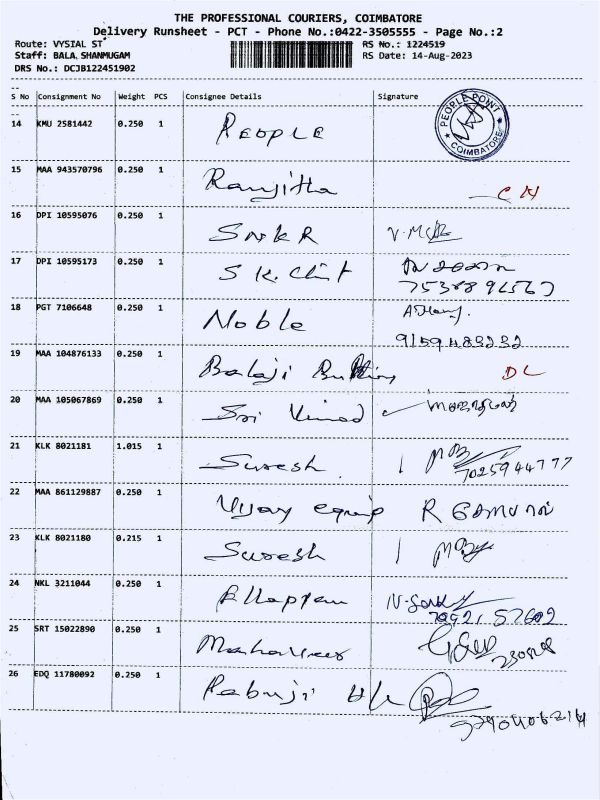 THE PROFESSIONAL COURIERS, COIMBATORE
Delivery Runsheet - PCT - Phone No.:0422-3505555 - Page No.:2
Route: VYSIAL ST
RS No.: 1224519
Staff: BALA.SHANMUGAM
RS Date: 14-Aug-2023
DRS No.: DCJB122451902
S No Consignment No Weight PCS Consignee Details Signature
14 KMU 2581442 0.250 1 PEOPLE
PEOPLE POINT
COIMBATORE
15 MAA 943570796 0.250 1 Ranjitha
16 DPI 10595076 0.250 1 SNKR
17 DPI 10595173 0.250 1 S K. Clint
18 PGT 7106648 0.250 1 Noble
9159483232
19 MAA 104876133 0.250 1 Balaji DL
20 MAA 105067869 0.250 1 Sri Vinod
21 KLK 8021181 1.015 1 Suresh
7025944777
22 MAA 861129887 0.250 1 Vijay equip R
23 KLK 8021180 0.215 1 Suresh
24 NKL 3211044 0.250 1
25 SRT 15022890 0.250 1
26 EDQ 11780092 0.250 1 Pabuji